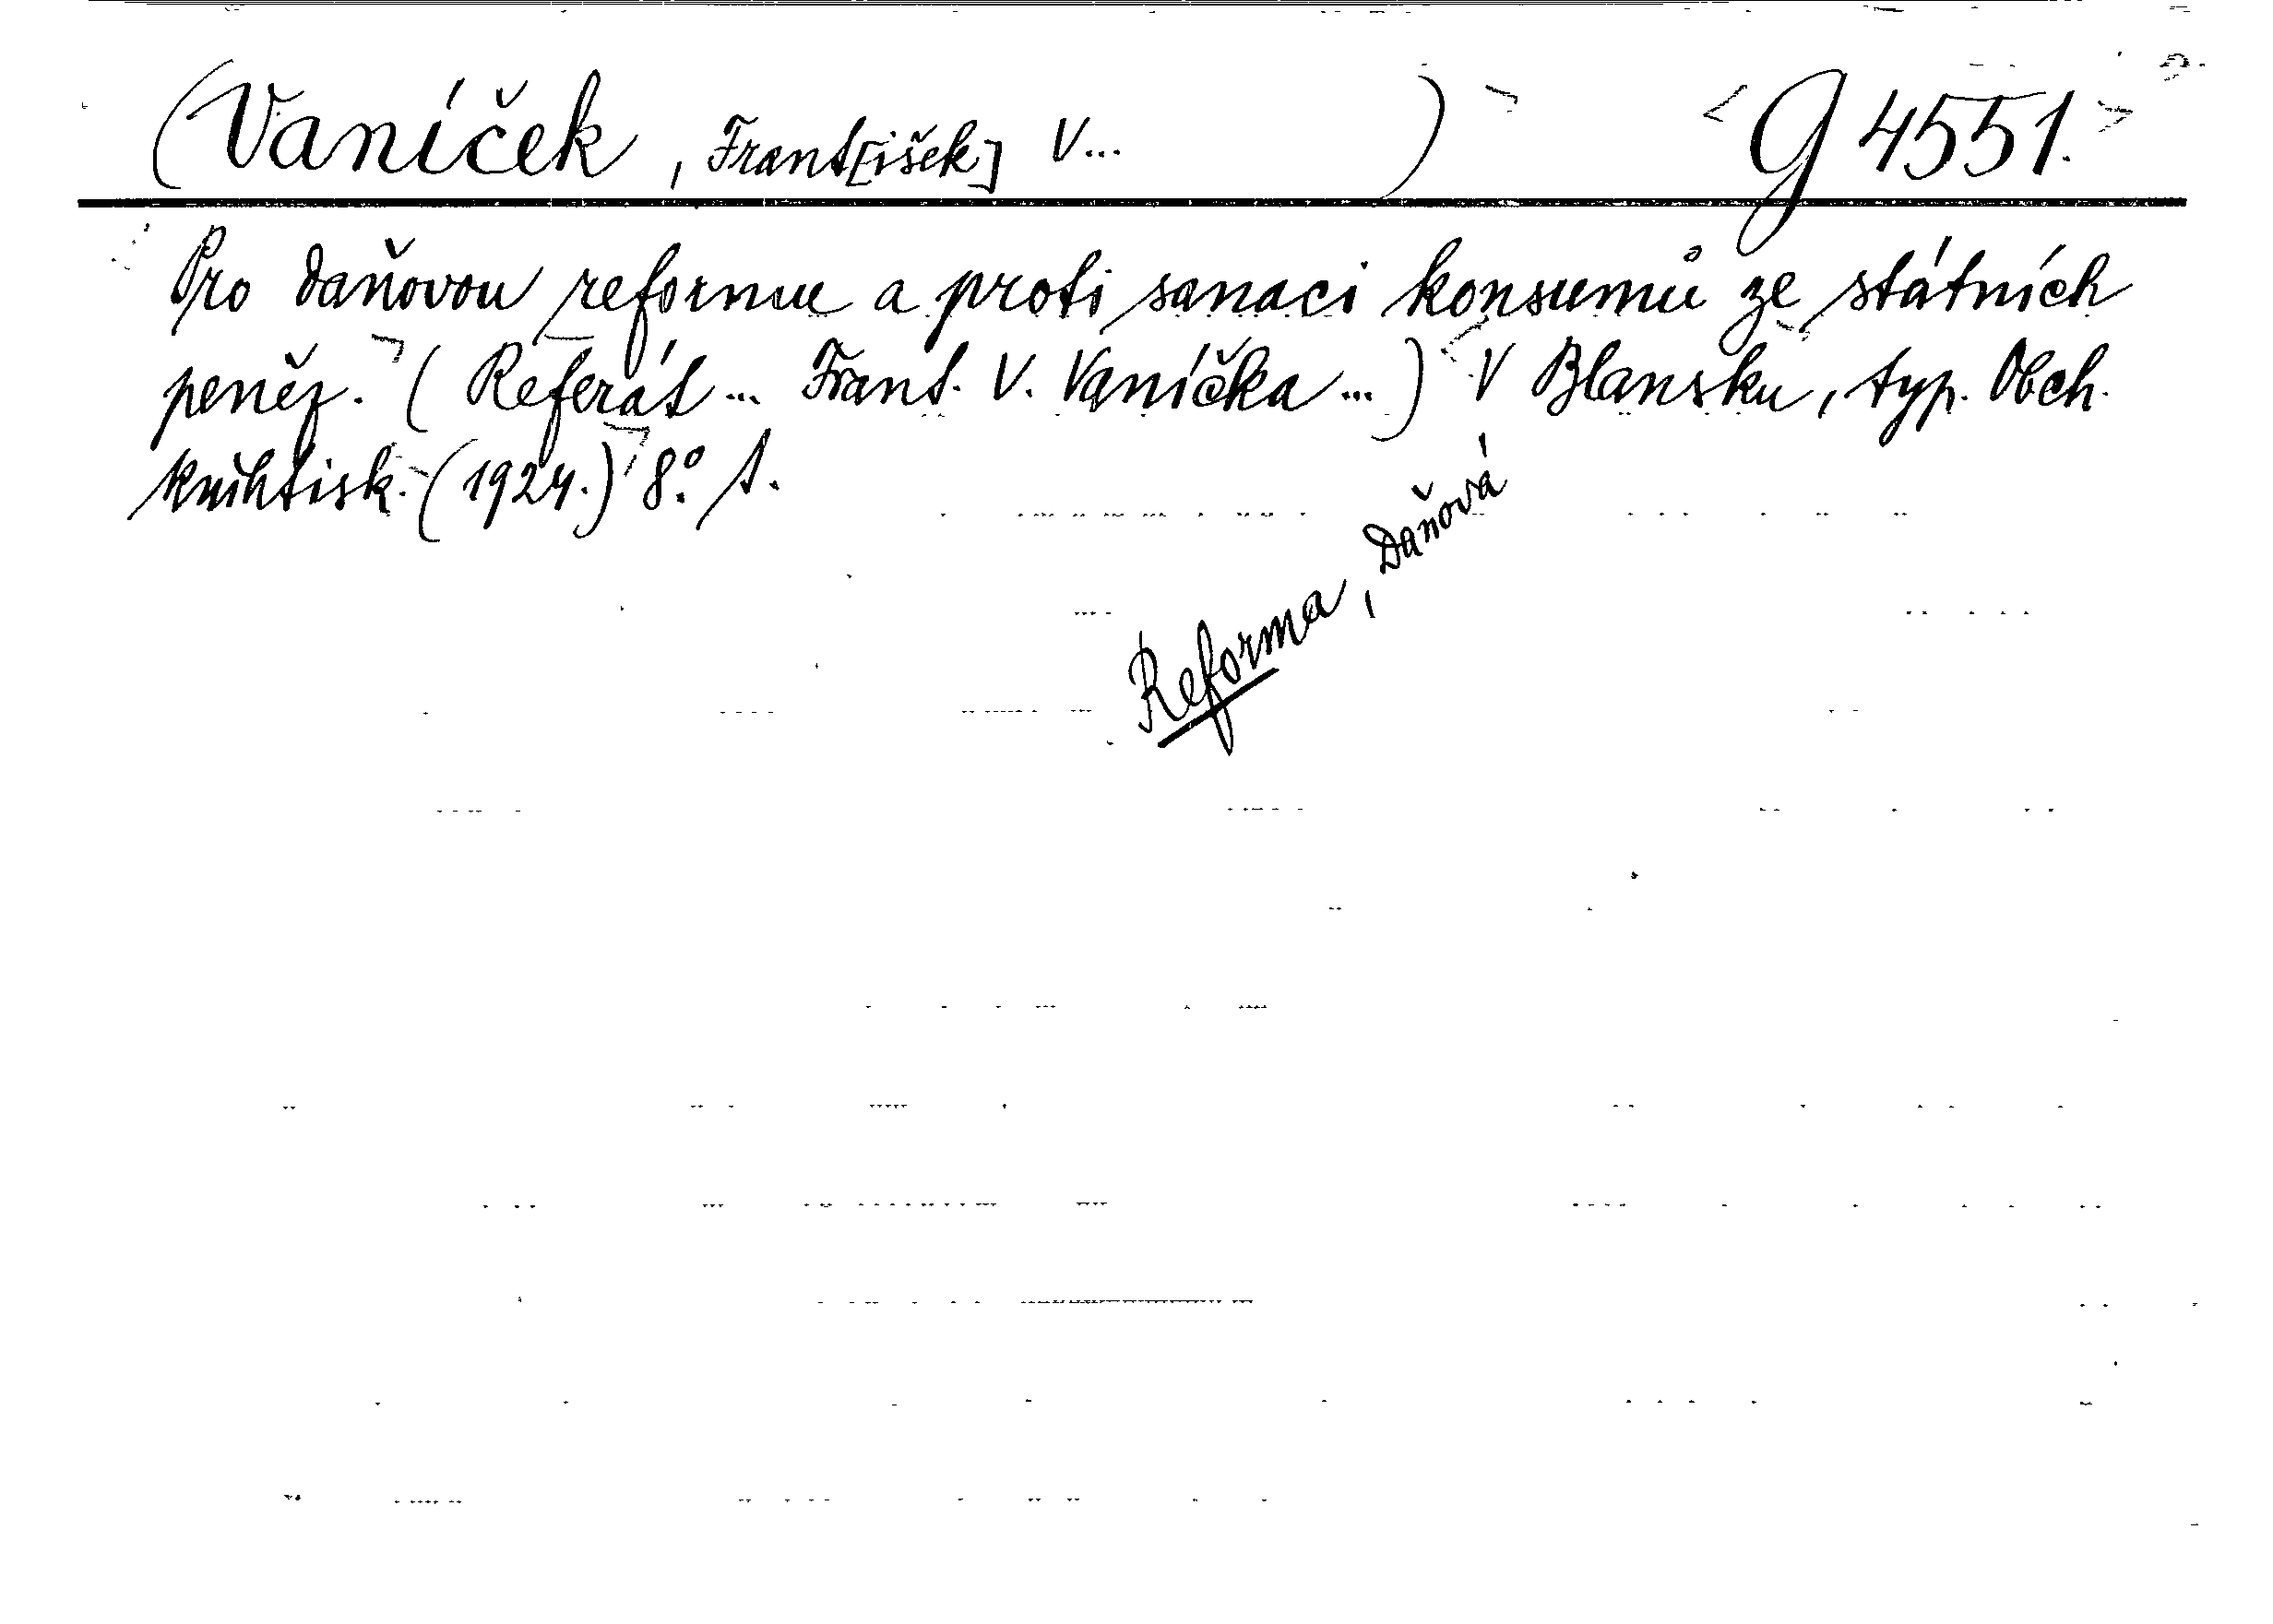 (Vaníček, Frant[išek] V... ) G 4551.
Pro daňovou reformu a proti sanaci konsumů ze státních
peněz. (Referát ... Frant. V. Vaníčka ...) V Blansku, typ. Obch.
knihtisk. (1924.) 8.° 1.
Reforma, Daňová